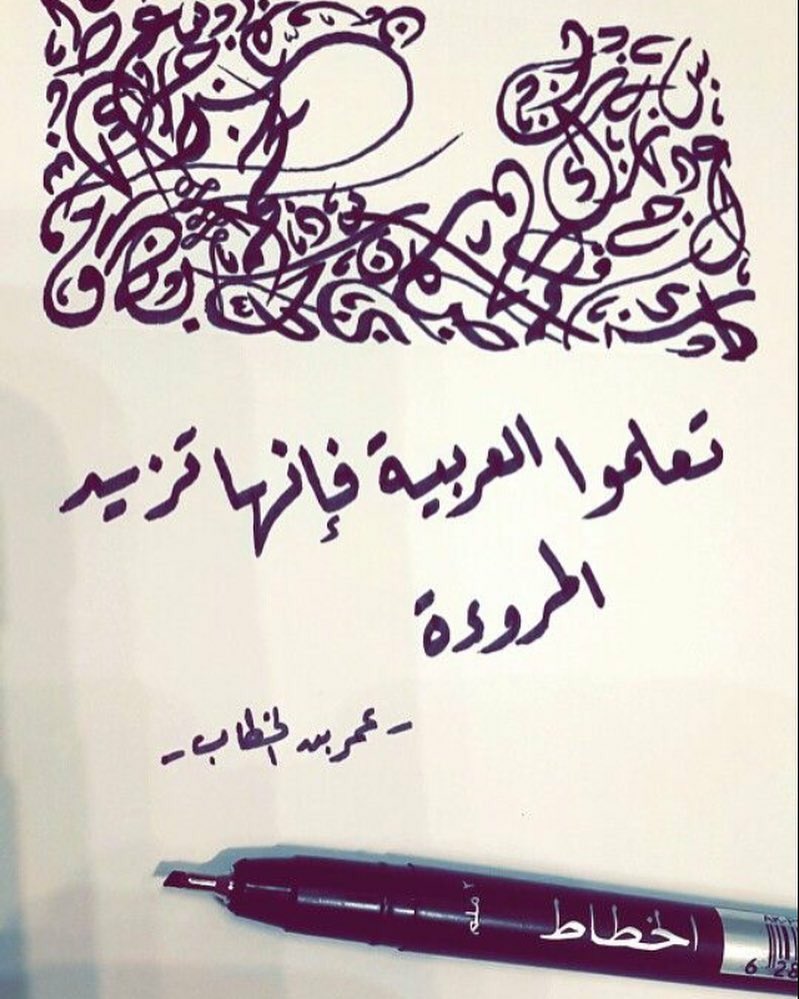 تعلموا العربية فإنها تزيد
المروءة
- عمر بن الخطاب -
٢ ملم
الخطاط
6 28